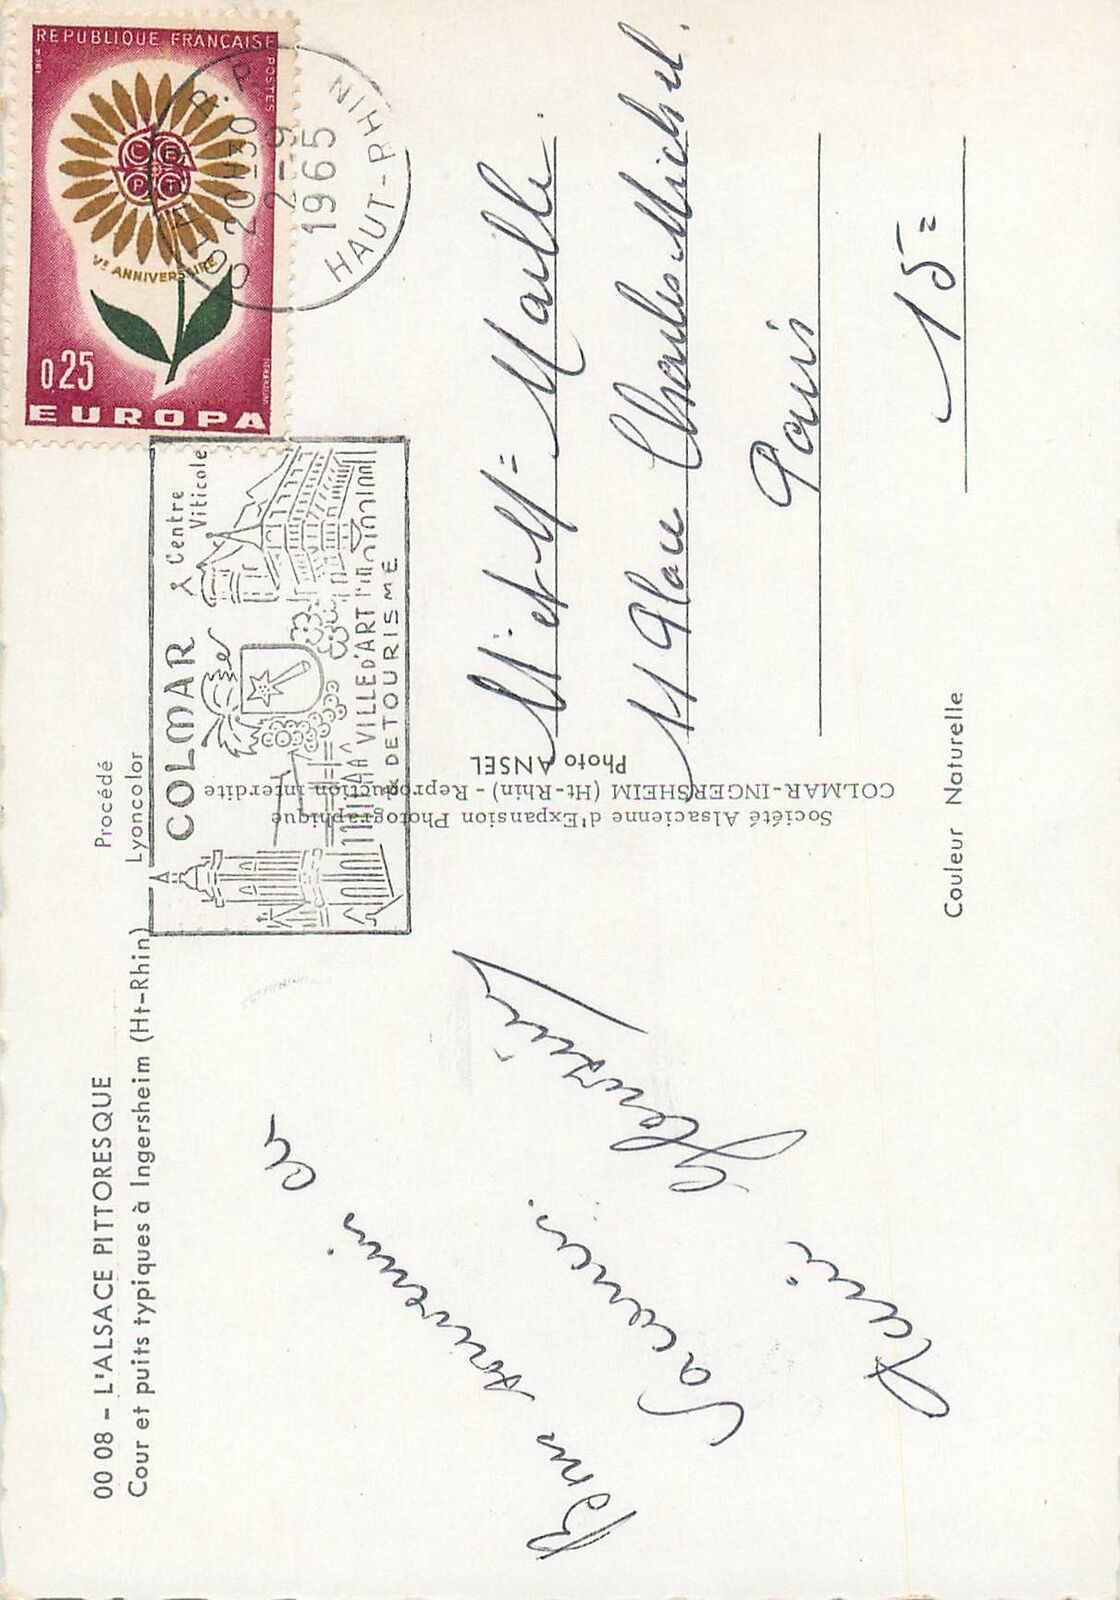 00 08 - L'ALSACE PITTORESQUE
Cour et puits typiques à Ingersheim (Ht-Rhin)
Procédé
Lyoncolor
REPUBLIQUE FRANÇAISE
POSTES
C E P T
Ve ANNIVERSAIRE
0,25
EUROPA
COLMAR R.P.
20H30
2-9
1965
HAUT-RHIN
COLMAR
Centre
Viticole
VILLE D'ART
& DE TOURISME
Bon souvenir et
Société Alsacienne d'Expansion Photographique
COLMAR-INGERSHEIM (Ht-Rhin) - Reproduction interdite
Photo ANSEL
Mr et Mme
11 Place Charles Michel.
Paris
15=
Couleur Naturelle